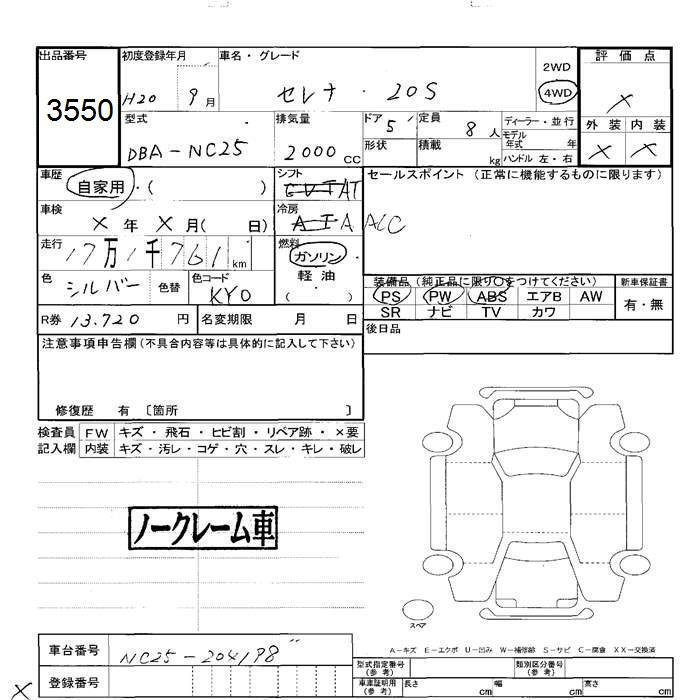 出品番号
3550
初度登録年月
H20 9月
車名・グレード
セレナ・20S
2WD
4WD
評価点
×
外装 内装
× ×
型式
DBA-NC25
排気量
2000cc
ドア 5
定員 8人
形状
積載 kg
ディーラー・並行
モデル年式 年
ハンドル 左・右
車歴
自家用・( )
シフト
AT
セールスポイント (正常に機能するものに限ります)
車検
×年 ×月( 日)
冷房
A/C
走行
17万1千761km
燃料
ガソリン
軽油
( )
色
シルバー
色替
色コード
KY0
装備品 (純正品に限り○をつけてください)
PS PW ABS エアB AW
SR ナビ TV カワ
新車保証書
有・無
R券 13.720円
名変期限 月 日
後日品
注意事項申告欄 (不具合内容等は具体的に記入して下さい)
修復歴 有 〔箇所 〕
検査員記入欄
FW キズ・飛石・ヒビ割・リペア跡・×要
内装 キズ・汚レ・コゲ・穴・スレ・キレ・破レ
ノークレーム車
スペア
A-キズ E-エクボ U-凹み W-補修跡 S-サビ C-腐食 XX-交換済
車台番号
NC25-204198
登録番号
×
型式指定番号(参考)
類別区分番号(参考)
車庫証明用(参考)
長さ cm
幅 cm
高さ cm